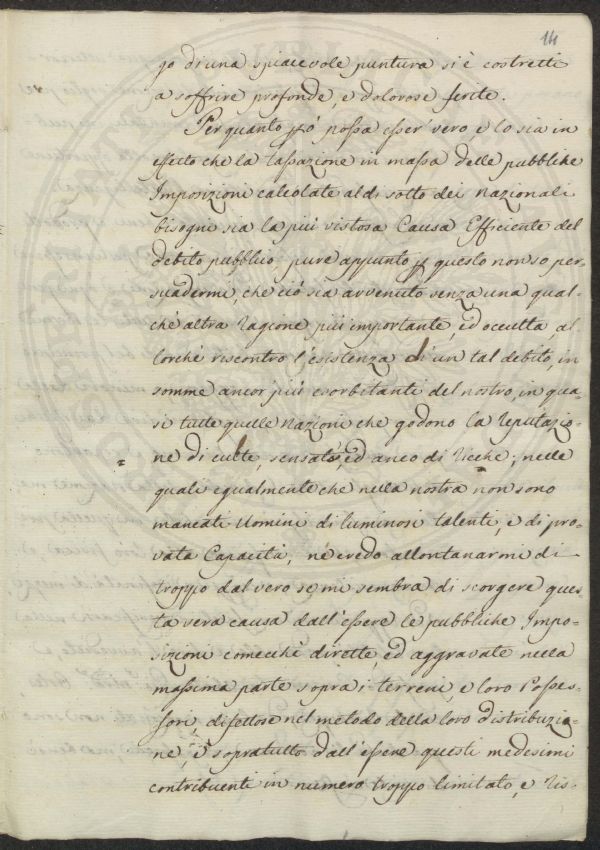 14
go di una spiacevole puntura si è costretti
a soffrire profonde, e dolorose ferite.
Per quanto può possa esser vero, e lo sia in
effetto che la tassazione in massa delle pubbliche
Imposizioni calcolate al di sotto dei nazionali
bisogni sia la più vistosa Causa Efficiente del
debito pubblico, pure appunto p questo non so per-
suadermi, che ciò sia avvenuto senza una qual-
che altra ragione più importante, ed occulta, al-
lorchè riscontro l'esistenza di un tal debito, in
somme ancor più esorbitanti del nostro, in qua-
si tutte quelle Nazioni che godono la reputazio-
ne di culte, sensate, ed anco di ricche; nelle
quali egualmente che nella nostra non sono
mancati Uomini di luminosi talenti, e di pro-
vata Capacità, nè credo allontanarmi di
troppo dal vero se mi sembra di scorgere ques-
ta vera causa dall'essere le pubbliche Impo-
sizioni comecchè dirette, ed aggravate nella
massima parte sopra i terreni, e loro Posses-
sori, difettose nel metodo della loro distribuzio-
ne, e sopratutto dall'essere questi medesimi
contribuenti in numero troppo limitato, e ris-